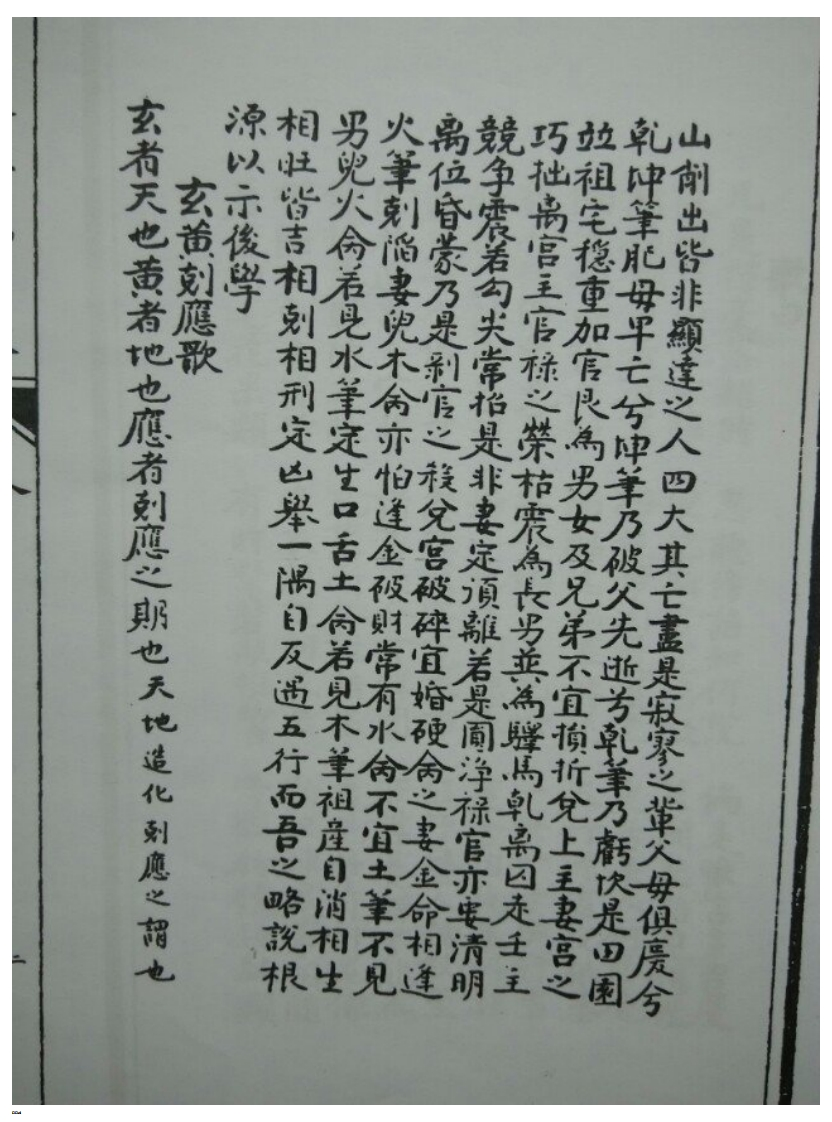 山削出皆非顯達之人四大其亡盡是寂寥之輩父母俱慶兮
乾坤筆肥母早亡兮坤筆乃破父先逝兮乾筆乃虧欠是田園
並祖宅穩重加官艮為男女及兄弟不宜損折兌上主妻宮之
巧拙离宮主官祿之榮枯震為長男並為驛馬乾离囚走壬主
競争震若勾尖常招是非妻定須離若是圓淨祿官亦要清明
离位昏蒙乃是剥官之殺兌宮破碎宜婚硬命之妻金命相逢
火筆剋陷妻兒木命亦怕逢金破財常有水命不宜土筆不見
男兒火命若見水筆定生口舌土命若見木筆祖産自消相生
相旺皆吉相剋相刑定凶舉一隅自反遇五行而吾之略說根
源以示後學
玄黄剋應歌
玄者天也黄者地也應者剋應之期也天地造化剋應之謂也